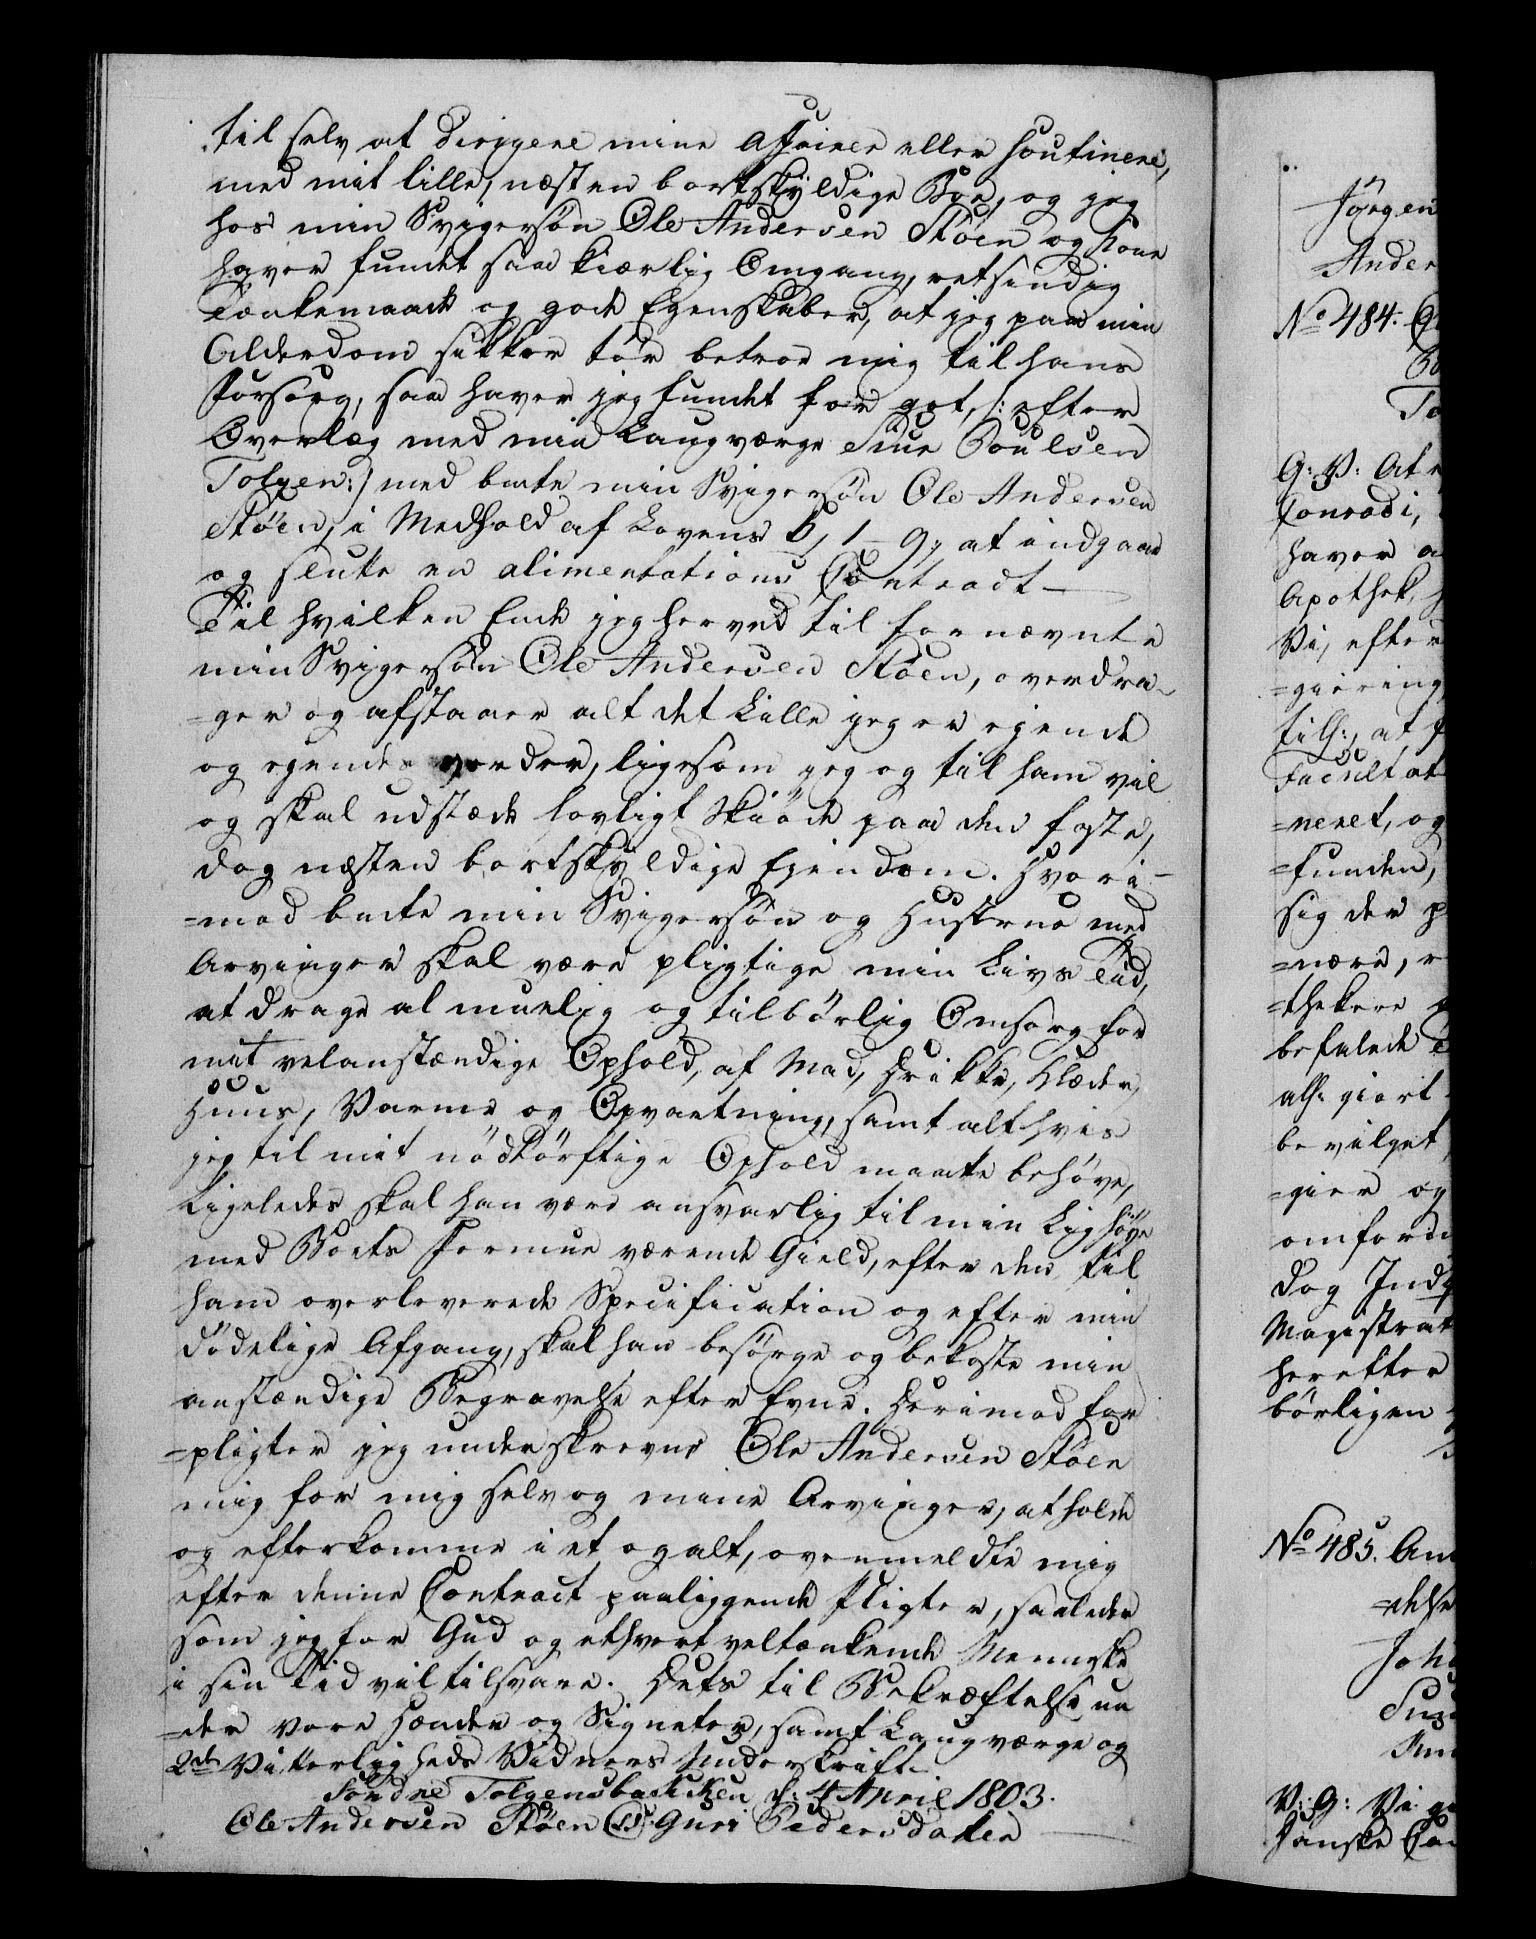 til selv at dirigere mine Affairer eller soutinere,
med mit lille, næsten bortskyldige Boe, og jeg
hos min Svigersøn Ole Andersen Støen og Kone
haver fundet saa kiærlig Omgang, retsindig
Tænkemaade og gode Egenskaber, at jeg paa min
Alderdom sikker tør betroe mig til hans
Forsorg, saa haver jeg fundet for got, /: efter
Overlæg med min Laugværge Siur Poulsen
Tolgen :/ med bemte min Svigersøn Ole Andersen
Støen, i Medhold af Lovens 5, 1 - 9, at indgaae
og slutte en alimentations Contract —
Til hvilken Ende jeg herved til fornævnte
min Svigersøn Ole Andersen Støen, overdra-
=ger og afstaaer alt det Lille jeg er ejende
og ejendes vorder, ligesom jeg og til ham vil
og skal udstæde lovligt Skiøde paa den faste,
dog næsten bortskyldige Ejendom. Hvori-
=mod bemte min Svigersøn og Hustrue med
Arvinger skal være pligtige min Livs Tid,
at drage al muelig og tilbørlig Omsorg for
mit velanstændige Ophold, af Mad, Drikke, Klæder,
Huus, Varme og Opvartning, samt alt hvis
jeg til mit nødtørftige Ophold maatte behøve,
Ligeledes skal han være ansvarlig til min Lighøye
med Boets Formue værende Gield, efter den til
ham overleverede Specification og efter min
dødelige Afgang, skal han besørge og bekoste min
anstændige Begravelse efter Evne. Derimod for
=pligter jeg underskrevne Ole Andersen Støen
mig for mig selv og mine Arvinger, at holde
og efterkomme i et og alt, ovenmeldte mig
efter denne Contract paaliggende Pligter, saaledes
som jeg for Gud og ethvert veltænkende Menneske
i sin Tid vil tilsvare. Dets til Bekræftelse un
=der vore Hænder og Signeter, samt Laugværge og
2de Vitterligheds Vidners Underskrift.
Søndre Tolgensbakken d: 4 April 1803.
Ole Andersen Støen (LS) Guri Pedersdatter
Jörgen
Ander
No 484.
G: V: At
Conradi,
haver a
Apothek,
Vi, efter
=giering
tils:, at
Facultat
=neret, og
=funden,
sig der p
=nære, e
=thekere
befalede
alle giort
bevilget,
=gier og
omford
dog Ind
Magistrat
herefter
børligen
No 485. An
=delse
Joh
V: G: Vi g
Danske Can